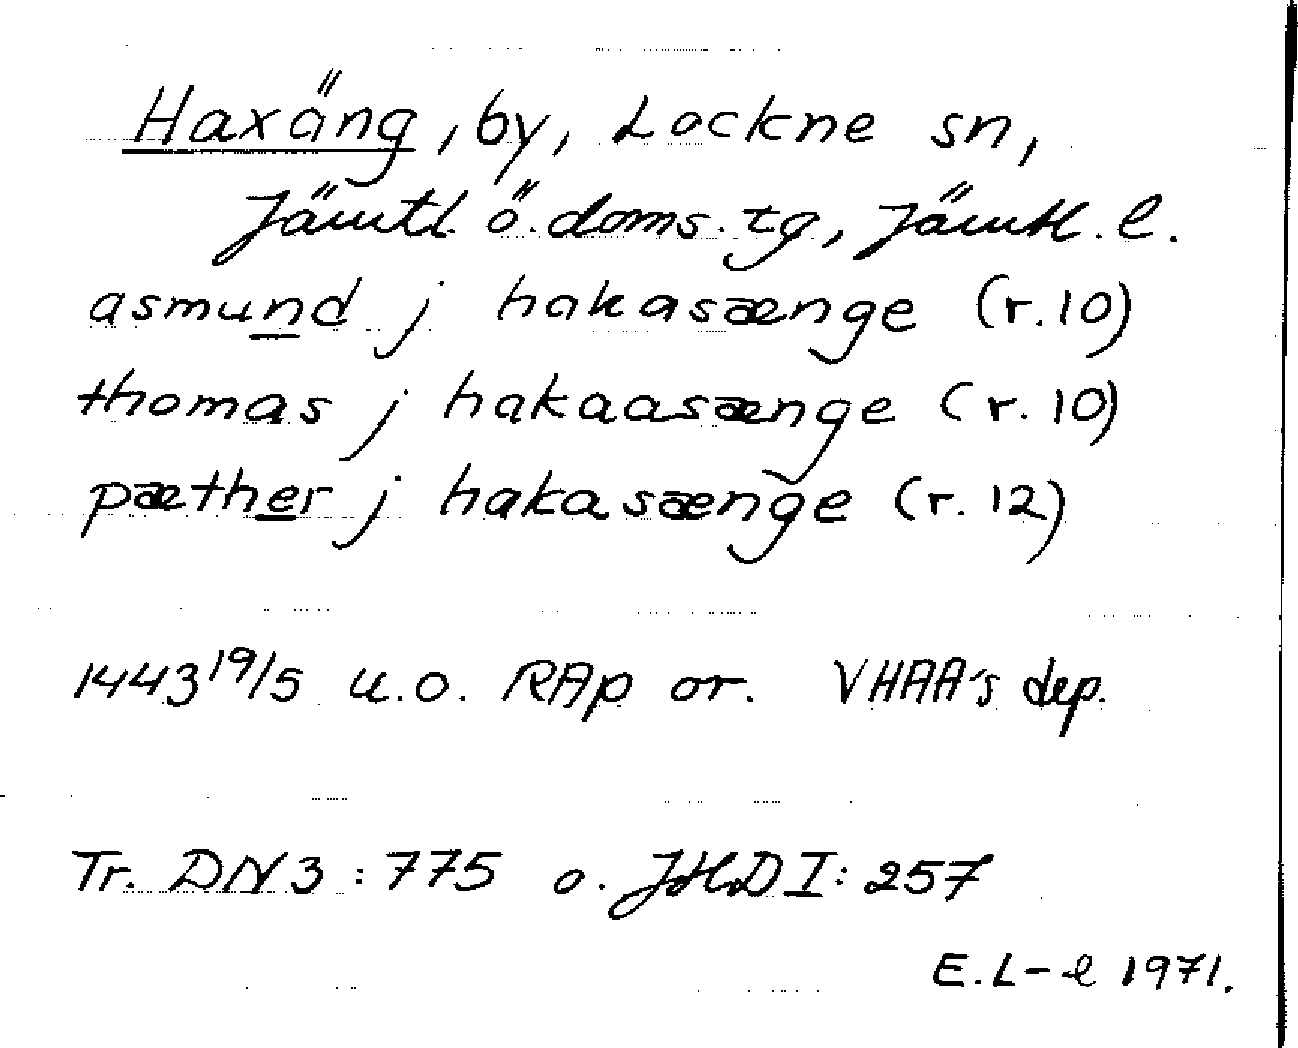 Haxäng, by, Lockne sn,
Jämtl. ö. doms. tg, Jämtl. l.
asmund j hakasænge (r. 10)
thomas j hakaasænge (r. 10)
pæther j hakasænge (r. 12)
1443 19/5 u.o. RAp or. VHAA's dep.
Tr. DN 3 : 775 o. JHD I : 257
E. L-l 1971.